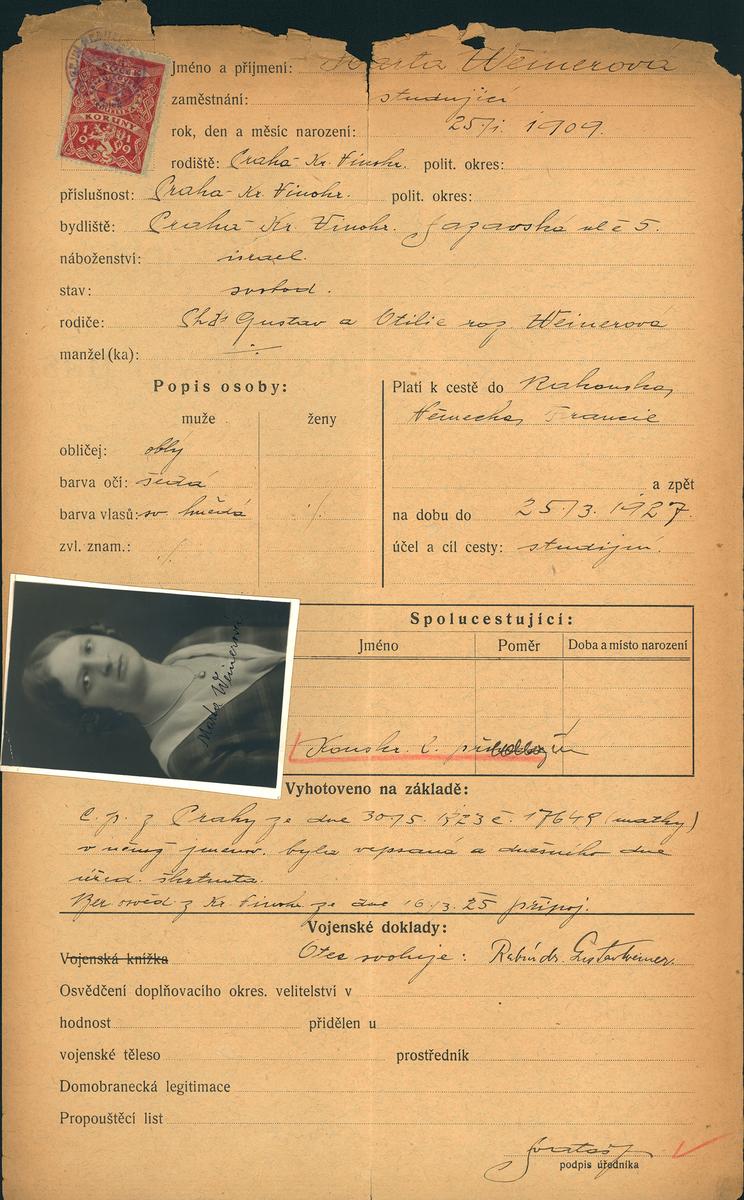 KORUNY
Jméno a příjmení: Marta Weinerová
zaměstnání: studující
rok, den a měsíc narození: 25/1. 1909.
rodiště: Praha - Kr. Vinohr. polit. okres:
příslušnost: Praha - Kr. Vinohr. polit. okres:
bydliště: Praha - Kr. Vinohr. Sázavská ul č 5.
náboženství: israel.
stav: svobod.
rodiče: Gustav a Otilie roz Weinerová
manžel(ka): ·/·
Popis osoby:
muže ženy
obličej: oblý
barva očí: šedá
barva vlasů: sv. hnědá ·/.
zvl. znam.: ·/.
Platí k cestě do Rakouska,
Německa, Francie
a zpět
na dobu do 25/3. 1927.
účel a cíl cesty: studijní.
Spolucestující:
Jméno Poměr Doba a místo narození
Konskr. l.
Marta Weinerová
Vyhotoveno na základě:
c. p. z Prahy ze dne 30/5 1923 č. 17649 (matky)
v němž jmenov. byla vepsaná a dnešního dne
úřed. škrtnuta.
Ber. osvěd z Kr. Vinohr ze dne 16/3. 25 připoj.
Vojenské doklady:
Vojenská knížka Otec svoluje: Rabín dr. Gustav Weiner.
Osvědčení doplňovacího okres. velitelství v
hodnost přidělen u
vojenské těleso prostředník
Domobranecká legitimace
Propouštěcí list
podpis úředníka